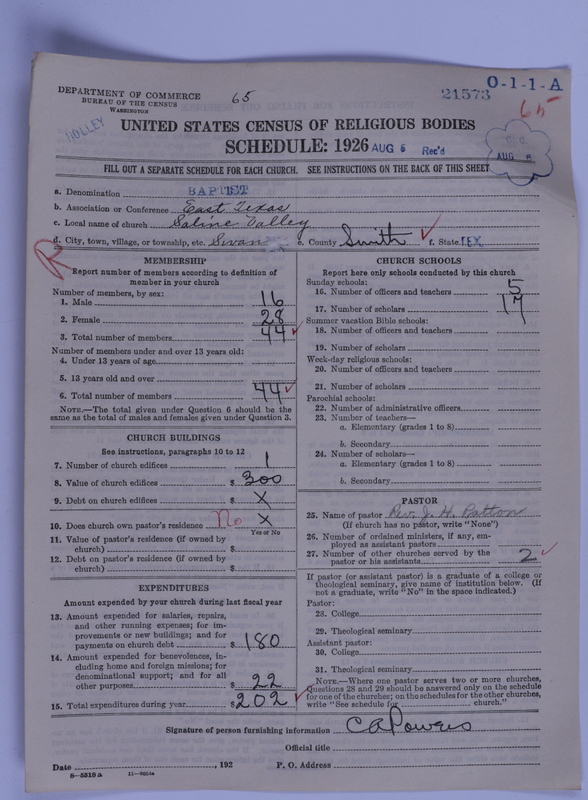 DEPARTMENT OF COMMERCE
BUREAU OF THE CENSUS
WASHINGTON
65
21573
O-1-1-A
65
HOLLEY
UNITED STATES CENSUS OF RELIGIOUS BODIES
SCHEDULE: 1926 AUG 5 Rec'd
AUG
FILL OUT A SEPARATE SCHEDULE FOR EACH CHURCH. SEE INSTRUCTIONS ON THE BACK OF THIS SHEET
a. Denomination BAPTIST
b. Association or Conference East Texas
c. Local name of church Saline Valley
d. City, town, village, or township, etc. Swan e. County Smith f. State TEX.
R
MEMBERSHIP
Report number of members according to definition of member in your church
Number of members, by sex:
1. Male 16
2. Female 28
3. Total number of members 44
Number of members under and over 13 years old:
4. Under 13 years of age
5. 13 years old and over
6. Total number of members 44
NOTE.—The total given under Question 6 should be the
same as the total of males and females given under Question 3.
CHURCH BUILDINGS
See instructions, paragraphs 10 to 12
7. Number of church edifices 1
8. Value of church edifices $ 300
9. Debt on church edifices $ X
10. Does church own pastor's residence No X
Yes or No
11. Value of pastor's residence (if owned by
church) $
12. Debt on pastor's residence (if owned by
church) $
EXPENDITURES
Amount expended by your church during last fiscal year
13. Amount expended for salaries, repairs,
and other running expenses; for im-
provements or new buildings; and for
payments on church debt $ 180
14. Amount expended for benevolences, in-
cluding home and foreign missions; for
denominational support; and for all
other purposes $ 22
15. Total expenditures during year $ 202
CHURCH SCHOOLS
Report here only schools conducted by this church
Sunday schools:
16. Number of officers and teachers 5
17. Number of scholars 17
Summer vacation Bible schools:
18. Number of officers and teachers
19. Number of scholars
Week-day religious schools:
20. Number of officers and teachers
21. Number of scholars
Parochial schools:
22. Number of administrative officers
23. Number of teachers—
a. Elementary (grades 1 to 8)
b. Secondary
24. Number of scholars—
a. Elementary (grades 1 to 8)
b. Secondary
PASTOR
25. Name of pastor Rev. J. H. Patton
(If church has no pastor, write "None")
26. Number of ordained ministers, if any, em-
ployed as assistant pastors
27. Number of other churches served by the
pastor or his assistants 2
If pastor (or assistant pastor) is a graduate of a college or
theological seminary, give name of institution below. (If
not a graduate, write "No" in the space indicated.)
Pastor:
28. College
29. Theological seminary
Assistant pastor:
30. College
31. Theological seminary
NOTE.—Where one pastor serves two or more churches,
Questions 28 and 29 should be answered only on the schedule
for one of the churches; on the schedules for the other churches,
write "See schedule for church."
Signature of person furnishing information C A Powers
Official title
Date , 192 P. O. Address
8-5318 a